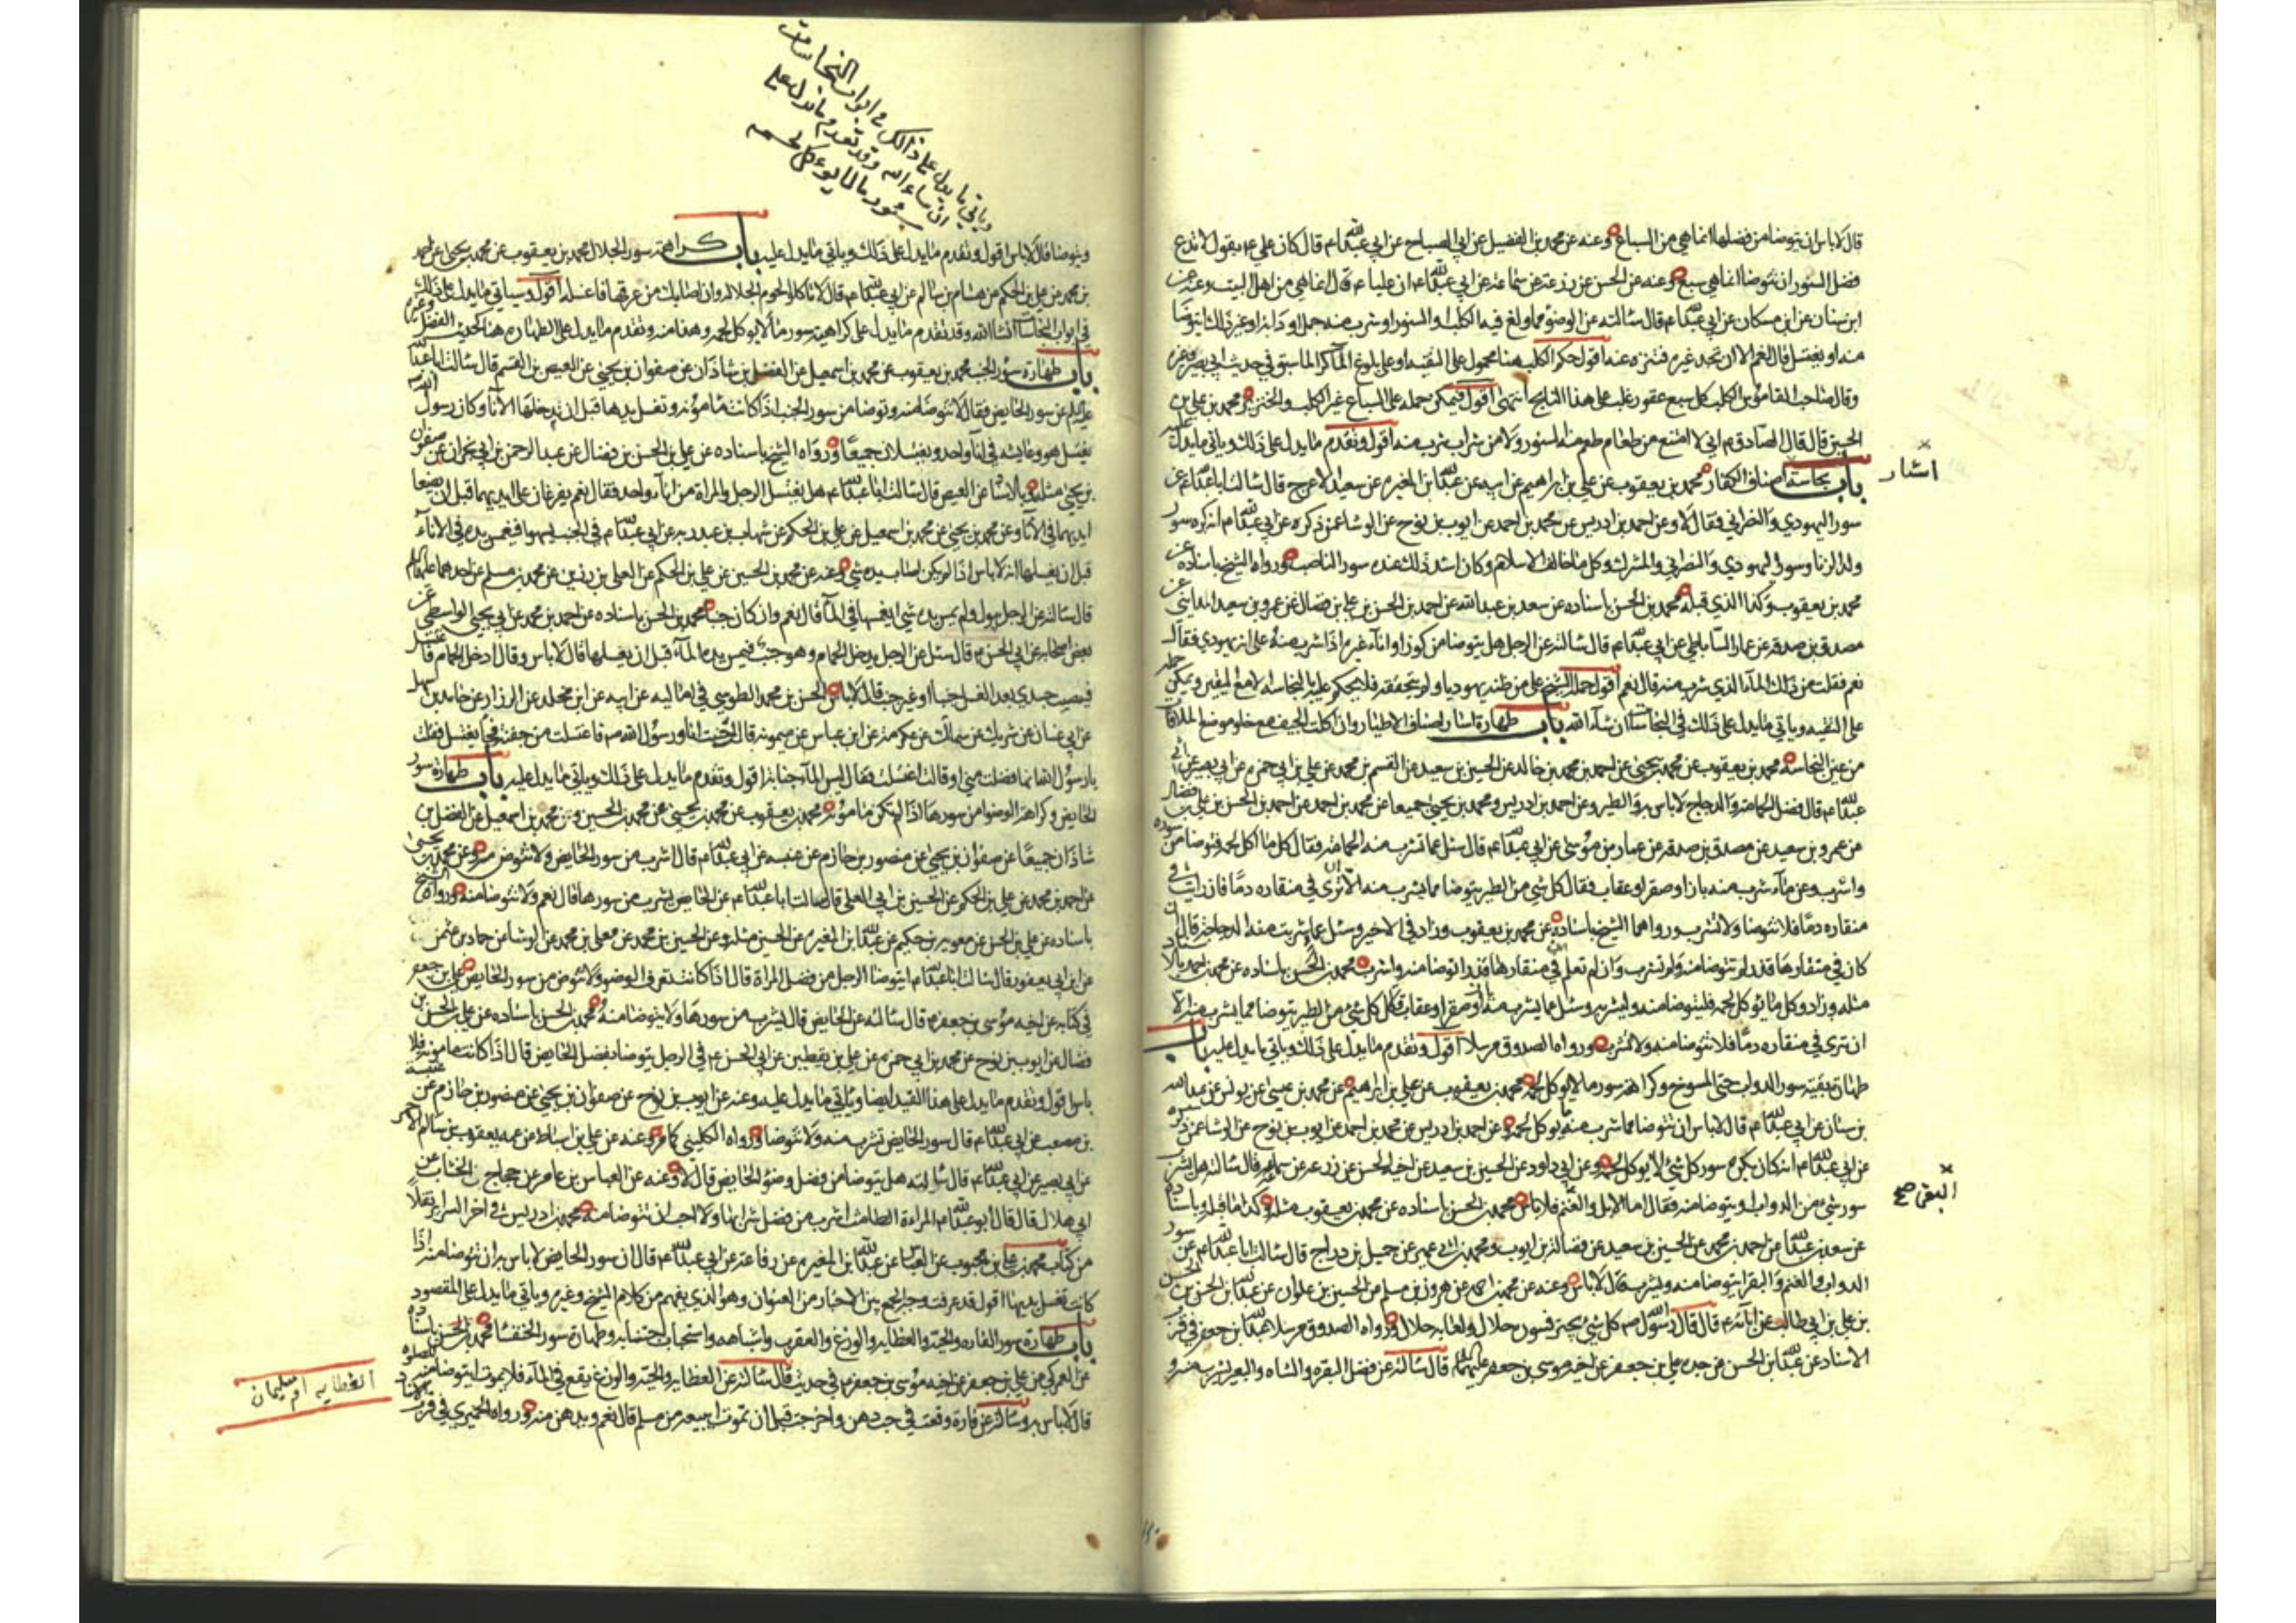 قال لا باس ان يتوضا من فضلها انما هي من السباع وعنه عن محمد بن الفضيل عن ابي الصباح عن ابي عبدالله ع قال كان علي ع يقول لا تدع
فضل السنور ان تتوضا انما هي سبع وعنه عن الحسن عن زرعة عن سماعة عن ابي عبدالله ع ان عليا ع قال انما هي من اهل البيت وعنه عن
ابن سنان عن ابن مسكان عن ابي عبدالله ع قال سالته عن الوضوء مما ولغ فيه الكلب او السنور او شرب منه جمل او دابة او غير ذلك ايتوضا
منه او يغتسل قال نعم الا ان تجد غيره فتنزه عنه اقول حكم الكلب هنا محمول على التقية او على بلوغ الماء كرا لما سبق في حديث ابي بصير وغيره
وقال صاحب القاموس الكلب كل سبع عقور غلب على هذا النابح انتهى اقول فيمكن حمله على السباع غير الكلب والخنزير محمد بن علي بن
الحسين قال قال الصادق ع اني لا امتنع من طعام طعم منه السنور ولا من شراب شرب منه اقول وتقدم ما يدل على ذلك وياتي ما يدل عليه
باب نجاسة اصناف الكفار محمد بن يعقوب عن علي بن ابراهيم عن ابيه عن عبدالله بن المغيرة عن سعيد الاعرج قال سالت ابا عبدالله ع عن
اسئار
سور اليهودي والنصراني فقال لا وعن احمد بن ادريس عن محمد بن احمد عن ايوب بن نوح عن الوشا عمن ذكره عن ابي عبدالله ع انه كره سور
ولد الزنا وسور اليهودي والنصراني والمشرك وكل ما خالف الاسلام وكان اشد ذلك عنده سور الناصب ورواه الشيخ باسناده عن
محمد بن يعقوب وكذا الذي قبله محمد بن الحسن باسناده عن سعد بن عبدالله عن احمد بن الحسن بن علي بن فضال عن عمرو بن سعيد المدايني عن
مصدق بن صدقه عن عمار الساباطي عن ابي عبدالله ع قال سالته عن الرجل هل يتوضا من كوز او اناء غيره اذا شرب منه على انه يهودي فقال
نعم فقلت من ذلك الماء الذي شرب منه قال نعم اقول حمله الشيخ على من ظنه يهوديا ولم يتحققه فلا يحكم عليه بالنجاسة الا مع اليقين ويمكن حمله
على التقيه وياتي ما يدل على ذلك في النجاسات ان شاء الله باب طهارة اسئار اصناف الاطيار وان اكلت الجيف مع خلو موضع الملاقاة
من عين النجاسة محمد بن يعقوب عن محمد بن يحيى عن احمد بن محمد بن خالد عن الحسين بن سعيد عن القسم بن محمد عن علي بن ابي حمزه عن ابي بصير عن ابي
عبدالله ع قال فضل الحمامة والدجاج لا باس به والطير وعن احمد بن ادريس ومحمد بن يحيى جميعا عن محمد بن احمد عن احمد بن الحسن بن علي بن فضال
عن عمرو بن سعيد عن مصدق بن صدقه عن عمار بن موسى عن ابي عبدالله ع قال سئل عما تشرب منه الحمامة فقال كل ما اكل لحمه فتوضا من سوره
واشرب وعن ماء شرب منه باز او صقر او عقاب فقال كل شي من الطير يتوضا مما يشرب منه الا ان ترى في منقاره دما فان رايت في
منقاره دما فلا تتوضا ولا تشرب ورواهما الشيخ باسناده عن محمد بن يعقوب وزاد في الاخير وسئل عما شربت منه الدجاجة قال ان
كان في منقارها قذر لم تتوضا منه ولم تشرب وان لم تعلم ان في منقارها قذرا توضا منه واشرب محمد بن الحسن باسناده عن محمد بن احمد بالاسناد
مثله وزاد وكل ما يؤكل لحمه فليتوضا منه وليشربه وسئل عما يشرب منه باز او صقر او عقاب قال كل شي من الطير يتوضا مما يشرب منه الا
ان ترى في منقاره دما فلا تتوضا منه ولا تشرب ورواه الصدوق مرسلا اقول وتقدم ما يدل على ذلك وياتي ما يدل عليه باب
طهارة بقية سور الدواب حتى المسوخ وكراهة سور ما لا يؤكل لحمه محمد بن يعقوب عن علي بن ابراهيم عن محمد بن عيسى عن يونس عن عبدالله
بن سنان عن ابي عبدالله ع قال لا باس ان تتوضا مما شرب منه ما يؤكل لحمه وعن احمد بن ادريس عن محمد بن احمد عن ايوب بن نوح عن الوشا عمن ذكره
عن ابي عبدالله ع انه كان يكره سور كل شي لا يؤكل لحمه وعن ابي داود عن الحسين بن سعيد عن اخيه الحسن عن زرعه عن سماعه قال سالته هل يشرب
سور شي من الدواب او يتوضا منه فقال اما الابل والغنم فلا باس محمد بن الحسن باسناده عن محمد بن يعقوب مثله وكذا ما قبله وباسناده
البقر صح
عن سعد بن عبدالله عن احمد بن محمد عن الحسين بن سعيد عن فضالة بن ايوب ومحمد بن ابي عمير عن جميل بن دراج قال سالت ابا عبدالله ع عن سور
الدواب والغنم والبقر ايتوضا منه ويشرب قال لا باس وعنه عن محمد بن احمد عن هرون بن مسلم عن الحسين بن علوان عن عبدالله بن الحسن بن الحسن
بن علي بن ابي طالب عن ابائه ع قال قال رسول الله ص كل شي يجتر فسوره حلال ولعابه حلال ورواه الصدوق مرسلا عبدالله بن جعفر في قرب
الاسناد عن عبدالله بن الحسن عن جده علي بن جعفر عن اخيه موسى بن جعفر عليهما السلام قال سالته عن فضل البقره والشاه والبعير يشرب منه و
وياتي ما يدل على ذلك في ابواب النجاسات
ان شاء الله وقد تقدم ما يدل على
سؤر ما لا يؤكل لحمه
ويتوضا قال لا باس اقول وتقدم ما يدل على ذلك وياتي ما يدل عليه باب كراهة سور الجلال محمد بن يعقوب عن محمد بن يحيى عن احمد
بن محمد عن علي بن الحكم عن هشام بن سالم عن ابي عبدالله ع قال لا تاكلوا لحوم الجلاله وان اصابك من عرقها فاغسله اقول وسياتي ما يدل على ذلك
في ابواب النجاسات انشا الله وقد تقدم ما يدل على كراهية سور ما لا يؤكل لحمه وهذا منه وتقدم ما يدل على الطهارة هنا كحديث الفضل وغيره
باب طهارة سؤر الجنب محمد بن يعقوب عن محمد بن اسمعيل عن الفضل بن شاذان عن صفوان بن يحيى عن العيص بن القسم قال سالت ابا عبدالله
عليه السلام عن سور الحايض فقال لا تتوضا منه وتوضا من سور الجنب اذا كانت مامونه وتغسل يدها قبل ان تدخلها الاناء وكان رسول الله ص
يغتسل هو وعايشه في اناء واحد ويغتسلان جميعا ورواه الشيخ باسناده عن علي بن الحسن بن فضال عن عبد الرحمن بن ابي نجران عن صفوان
بن يحيى مثله وبالاسناد عن العيص قال سالت ابا عبدالله ع هل يغتسل الرجل والمراة من اناء واحد فقال نعم يفرغان على ايديهما قبل ان يضعا
ايديهما في الاناء وعن محمد بن يحيى عن محمد بن اسمعيل عن علي بن الحكم عن شهاب بن عبد ربه عن ابي عبدالله ع في الجنب يسهو فيغمس يده في الاناء
قبل ان يغسلها انه لا باس اذا لم يكن اصاب يده شي وعنه عن محمد بن الحسين عن علي بن الحكم عن العلى بن رزين عن محمد بن مسلم عن احدهما عليهما السلام
قال سالته عن الرجل يبول ولم يمس يده شي ايغمسها في الماء قال نعم وان كان جنبا محمد بن الحسن باسناده عن احمد بن محمد عن ابي يحيى الواسطي عن
بعض اصحابه عن ابي الحسن ع قال سئل عن الرجل يدخل الحمام وهو جنب فيمس يده الماء قبل ان يغسلها قال لا باس وقال ادخل الحمام فاغتسل
فيصيب جسدي بعد الغسل جنبا او غير جنب قال لا باس الحسن بن محمد الطوسي في اماليه عن ابيه عن ابن مخلد عن الرزاز عن حامد بن سهل
عن ابي غسان عن شريك عن سماك عن عكرمه عن ابن عباس عن ميمونه قال اجنبت انا ورسول الله ص فاغتسلت من جفنة فجاء يغتسل فقلت
يا رسول الله انها فضلة مني او قالت اغتسلت فقال ليس الماء جنابة اقول وتقدم ما يدل على ذلك وياتي ما يدل عليه باب طهارة سور
الحايض وكراهة الوضوء من سورها اذا لم تكن مامونة محمد بن يعقوب عن محمد بن يحيى عن محمد بن الحسين وعن محمد بن اسمعيل عن الفضل بن
شاذان جميعا عن صفوان بن يحيى عن منصور بن حازم عن عنبسه عن ابي عبدالله ع قال اشرب من سور الحايض ولا تتوض منه وعن محمد بن يحيى
عن احمد بن محمد عن علي بن الحكم عن الحسين بن ابي العلى قال سالت ابا عبدالله ع عن الحايض يشرب من سورها قال نعم ولا تتوضا منه ورواه الشيخ
باسناده عن علي بن الحسن عن معوية بن حكيم عن عبدالله بن المغيره عن الحسين مثله وعن الحسين بن محمد عن معلى بن محمد عن الوشا عن حماد بن عثمن
عن ابن ابي يعفور قال سالت ابا عبدالله ع ايتوضا الرجل من فضل المراة قال اذا كانت تعرف الوضوء ولا تتوض من سور الحايض علي بن جعفر
في كتابه عن اخيه موسى بن جعفر ع قال سالته عن الحايض قال يشرب من سورها ولا يتوضا منه محمد بن الحسن باسناده عن علي بن الحسن بن
فضال عن ايوب بن نوح عن محمد بن ابي حمزه عن علي بن يقطين عن ابي الحسن ع في الرجل يتوضا بفضل الحايض قال اذا كانت مامونة فلا
باس اقول وتقدم ما يدل على هذا القيد ايضا وياتي ما يدل عليه وعنه عن ايوب بن نوح عن صفوان بن يحيى عن منصور بن حازم عن عنبسة
بن مصعب عن ابي عبدالله ع قال سور الحايض تشرب منه ولا تتوضا ورواه الكليني كما مر وعنه عن علي بن اسباط عن عمه يعقوب بن سالم الاحمر
عن ابي بصير عن ابي عبدالله ع قال سالته هل يتوضا من فضل وضوء الحايض قال لا وعنه عن العباس بن عامر عن حجاج الخشاب عن
ابي هلال قال قال ابو عبدالله ع المراة الطامث اشرب من فضل شرابها ولا احب ان تتوضا منه محمد بن ادريس في اخر السراير نقلا
من كتاب محمد بن علي بن محبوب عن العباس عن عبدالله بن المغيره عن رفاعة عن ابي عبدالله ع قال ان سور الحايض لا باس به ان تتوضا منه اذا
كانت تغسل يديها اقول قد عرفت وجه الجمع بين الاخبار من العنوان وهو الذي يفهم من كلام الشيخ وغيره وياتي ما يدل على المقصود
باب طهارة سور الفاره والحية والعظايه والوزغ والعقرب واشباهه واستحباب اجتنابه وطهارة سور الخنفسا محمد بن الحسن باسناده
عن العمركي عن علي بن جعفر عن اخيه موسى بن جعفر ع في حديث قال سالته عن العظايه والحية والوزغ يقع في الماء فلا يموت ايتوضا منه للصلوة
قال لا باس به وسالته عن فارة وقعت في حب دهن واخرجت قبل ان تموت ايبيعه من مسلم قال نعم ويدهن منه ورواه الحميري في قرب الاسناد
العظايه ام سليمان